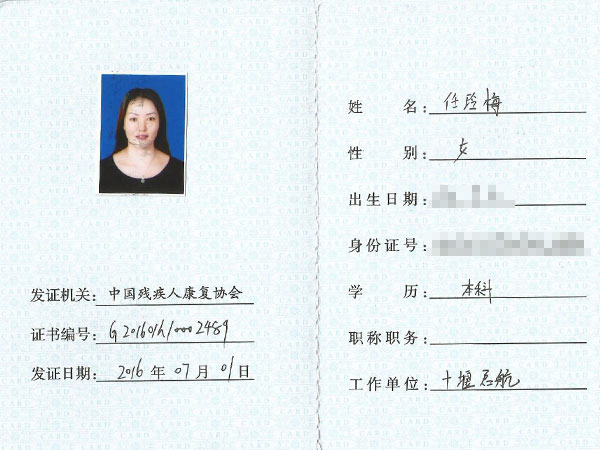 发证机关：中国残疾人康复协会
证书编号：
发证日期：2016 年 07 月 01 日
姓 名：任 梅
性 别：女
出生日期：
身份证号：
学 历：本科
职称职务：
工作单位：十堰启航